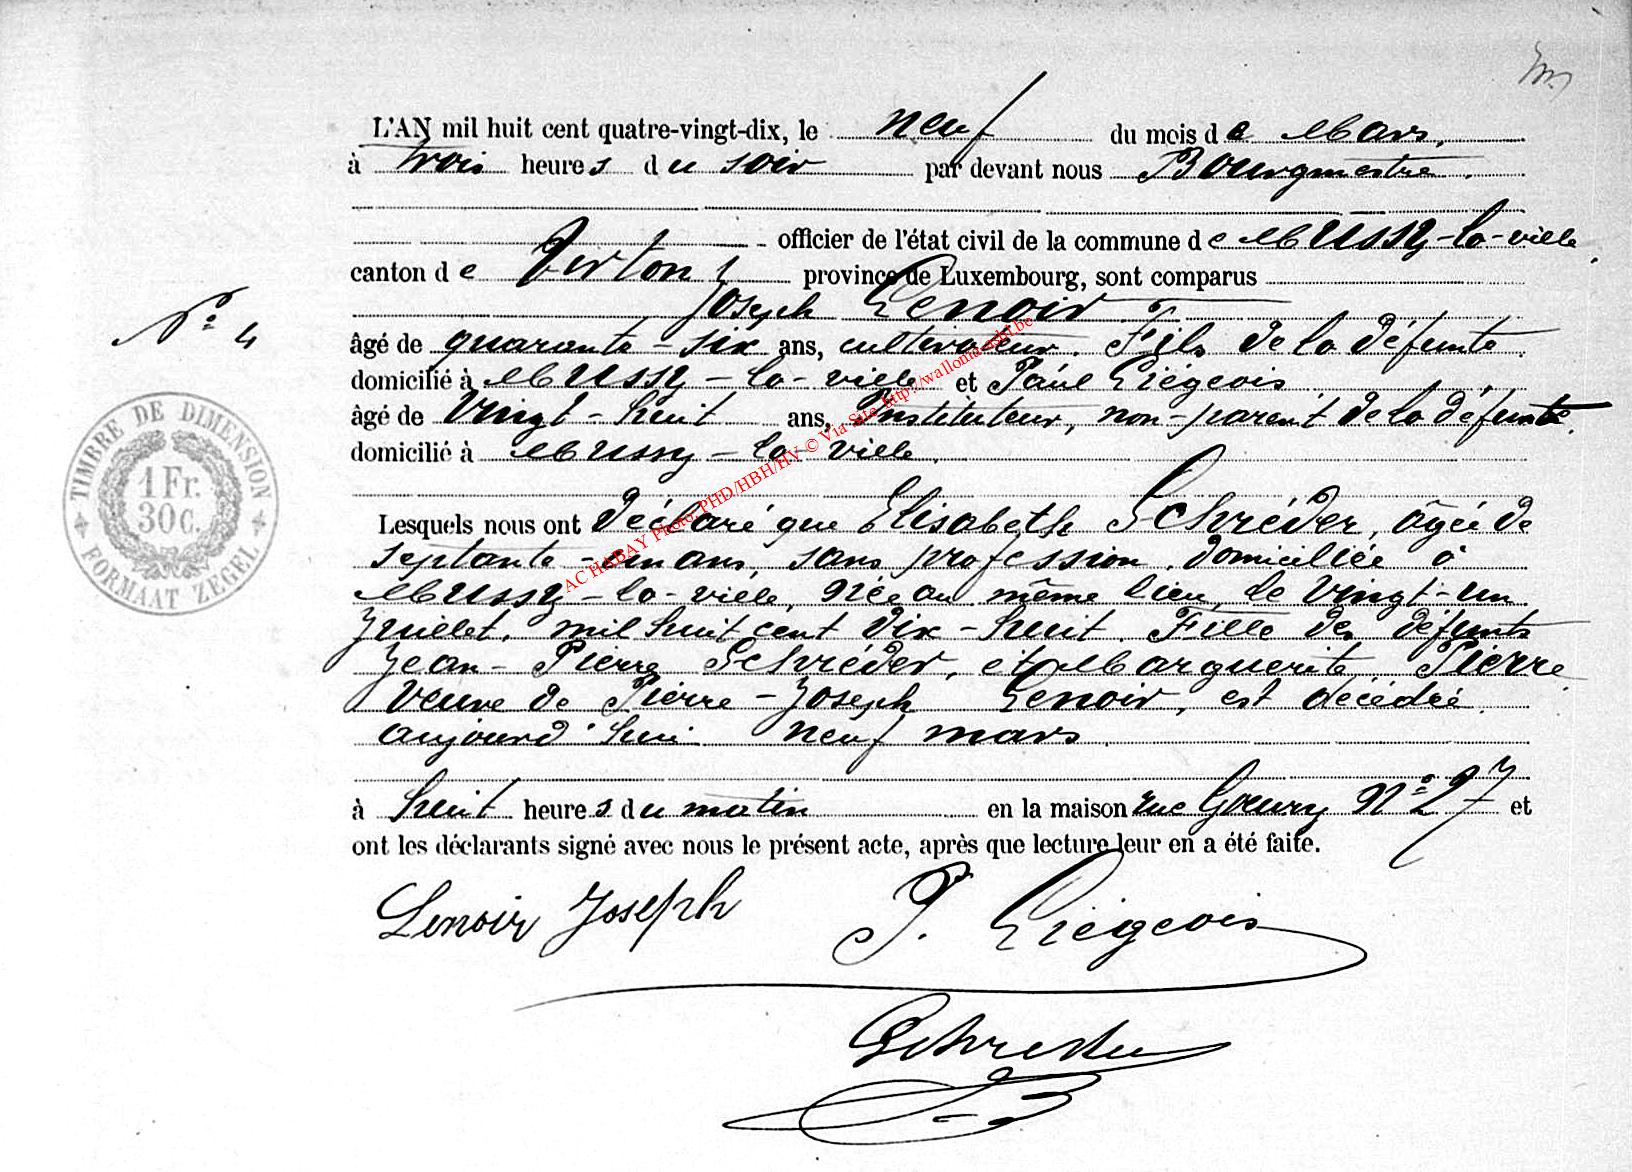 L'AN mil huit cent quatre-vingt-dix, le neuf du mois de Mars,
à trois heures du soir par devant nous Bourgmestre.
officier de l'état civil de la commune de Mussy-la-ville,
canton de Virton, province de Luxembourg, sont comparus
Joseph Lenoir
N° 4
âgé de quarante-six ans, cultivateur. Fils de la défunte
domicilié à Mussy-la-ville et Paul Liégeois
âgé de Vingt-huit ans, Instituteur, non-parent de la défunte.
domicilié à Mussy-la-ville.
TIMBRE DE DIMENSION
1 Fr.
30 C.
FORMAAT ZEGEL
Lesquels nous ont déclaré que Elisabeth Schréder, âgée de
septante-un ans, sans profession, domiciliée à
Mussy-la-ville, Née au même lieu, le vingt-un
juillet, mil huit cent dix-huit. Fille des défunts
Jean-Pierre Schréder, et Marguerite Pierre
Veuve de Pierre-Joseph Lenoir, est décédée
aujourd'hui neuf mars
à huit heures du matin en la maison rue Gœury N° 27 et
ont les déclarants signé avec nous le présent acte, après que lecture leur en a été faite.
Lenoir Joseph P. Liégeois
AC HABAY Photo: PHD/HBH/HV © Via Site http://wallonia-asbl.be